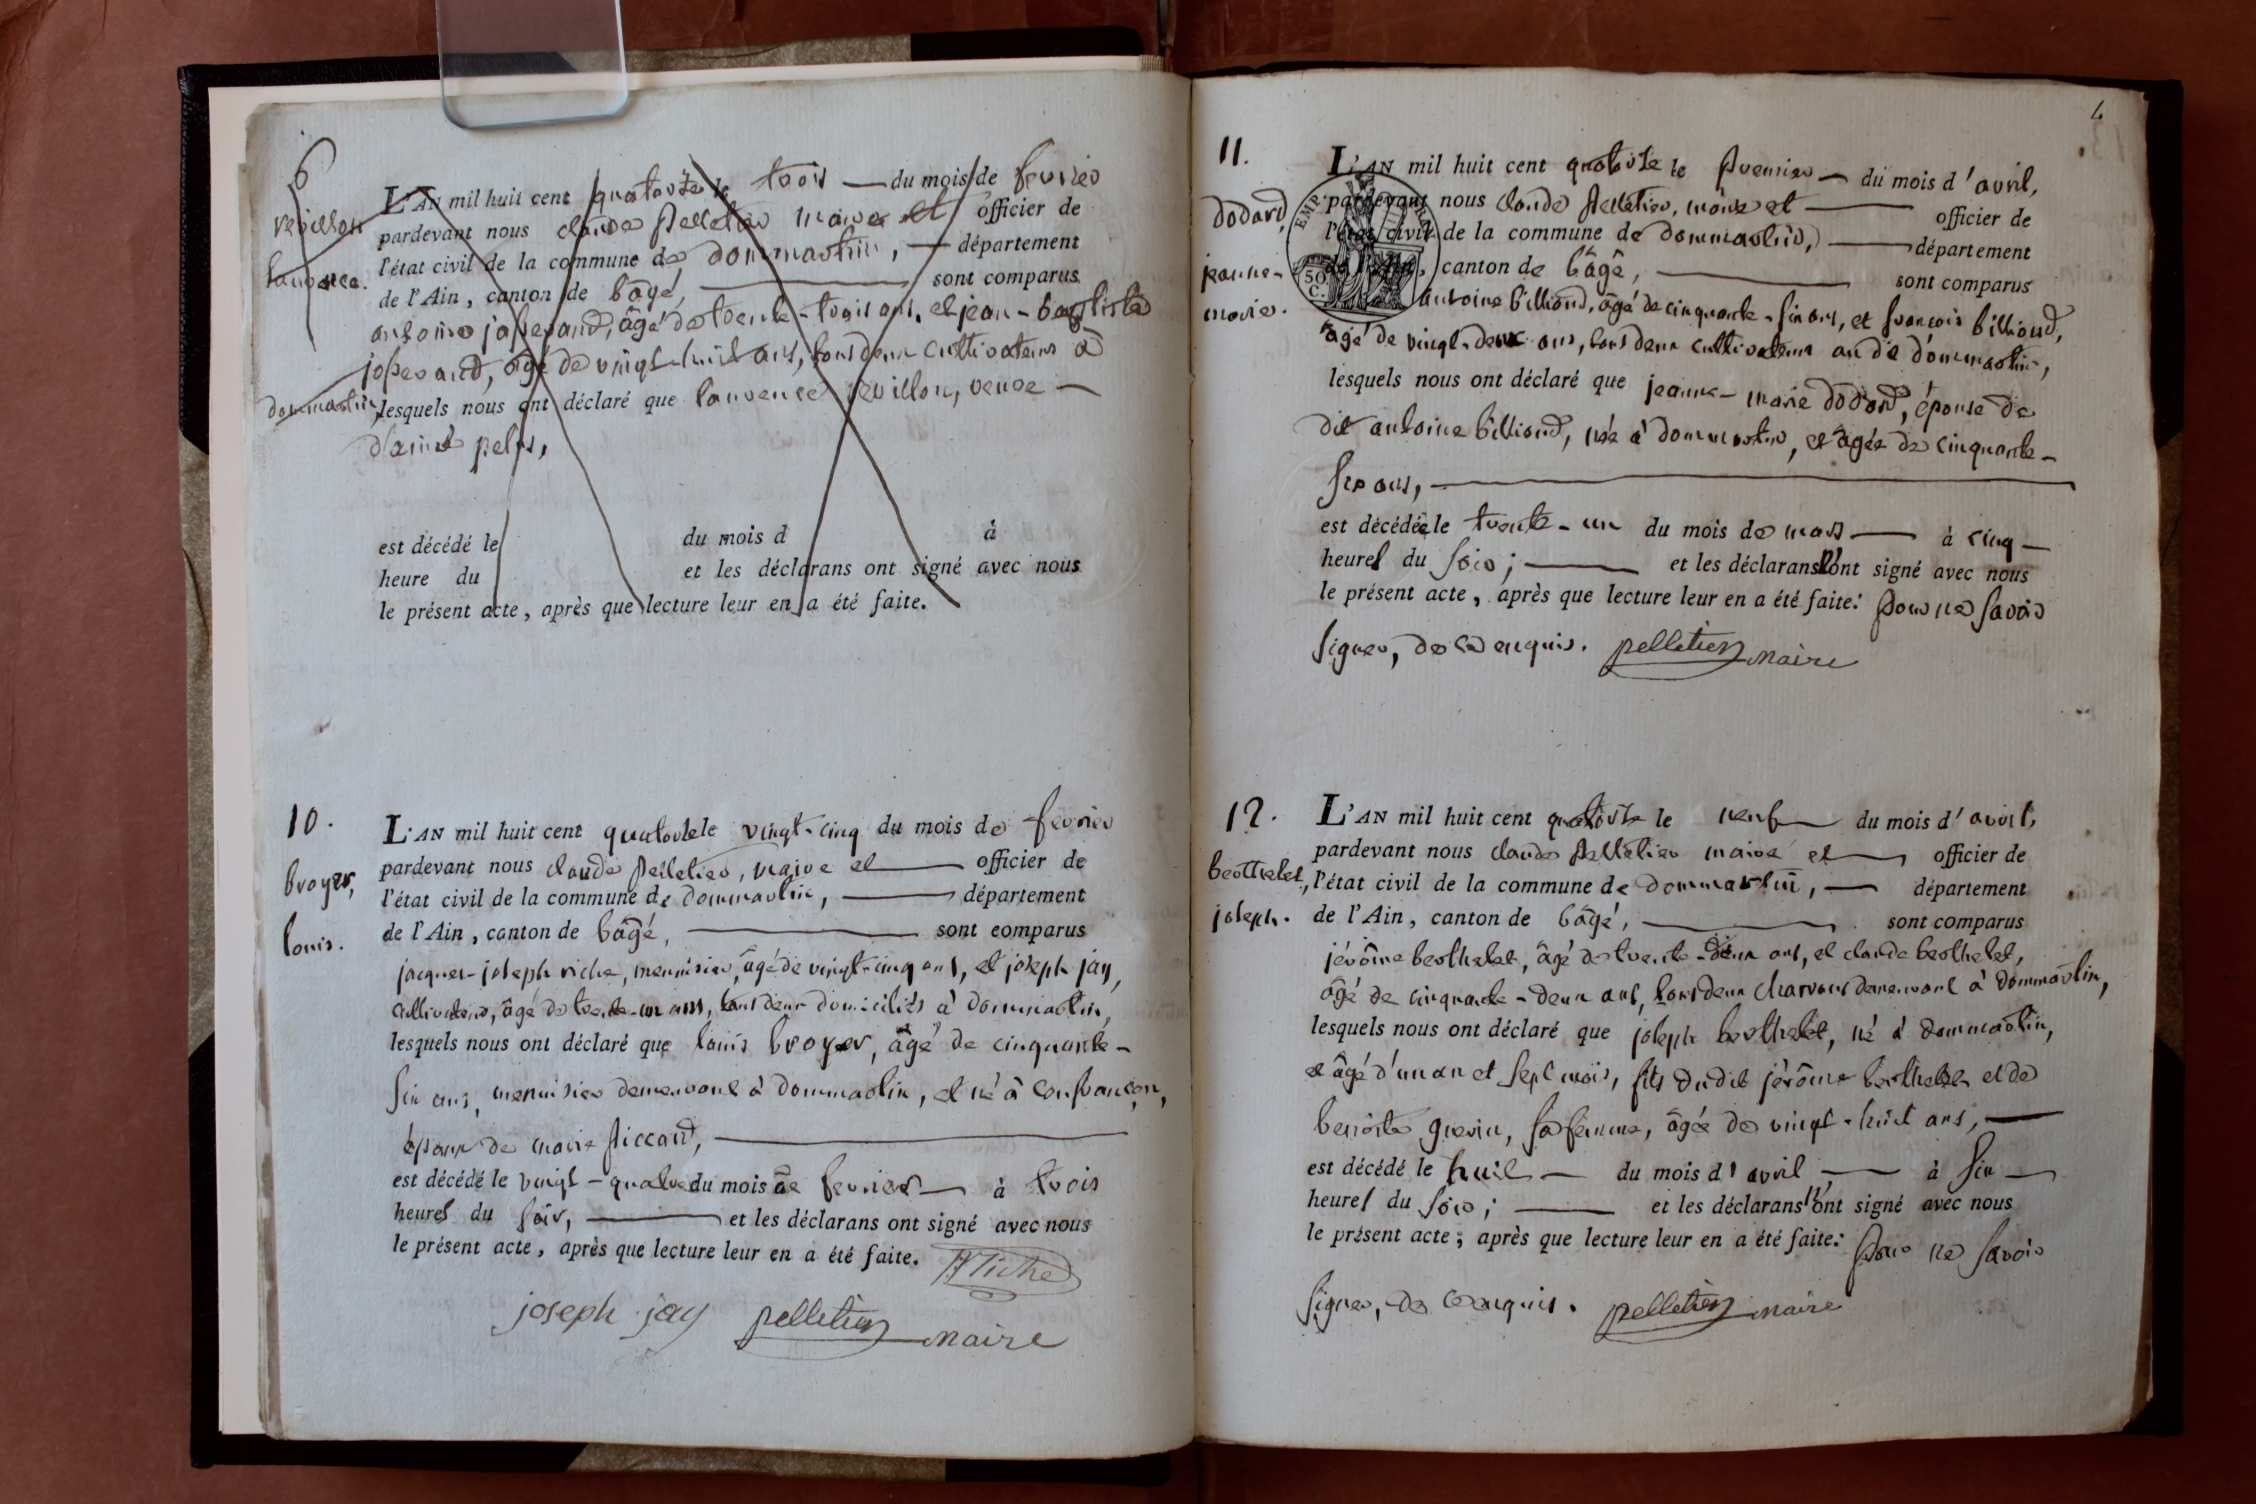 6
revillon
laurence.
L'AN mil huit cent quatorze le trois du mois de fevrier
pardevant nous claude pelletier maire et officier de
l'état civil de la commune de dommartin, département
de l'Ain, canton de bâgé, sont comparus
antoine josserand, âgé de trente-trois ans, et jean-baptiste
josserand, âgé de vingt-huit ans, tous deux cultivateurs à
dommartin, lesquels nous ont déclaré que laurence revillon, veuve
d'aimé
est décédé le du mois d à
heure du et les déclarans ont signé avec nous
le présent acte, après que lecture leur en a été faite.
10.
broyer,
louis.
L'AN mil huit cent quatorze le vingt-cinq du mois de fevrier
pardevant nous claude pelletier, maire et officier de
l'état civil de la commune de dommartin, département
de l'Ain, canton de bâgé, sont comparus
jacques-joseph riche, menuisier, âgé de vingt-cinq ans, et joseph jay,
cultivateur, âgé de trente-un ans, tous deux domiciliés à dommartin,
lesquels nous ont déclaré que louis broyer, âgé de cinquante-
six ans, menuisier demeurant à dommartin, et né à confrançon,
époux de marie piccard,
est décédé le vingt-quatre du mois de fevrier à trois
heures du soir, et les déclarans ont signé avec nous
le présent acte, après que lecture leur en a été faite. Riche
joseph jay pelletier maire
4
11.
dodard,
jeanne-
marie.
L'AN mil huit cent quatorze le premier du mois d'avril,
pardevant nous claude pelletier, maire et officier de
l'état civil de la commune de dommartin, département
de l'Ain, canton de bâgé, sont comparus
EMP. FRA
50
C.
antoine billioud, âgé de cinquante-six ans, et françois billioud,
âgé de vingt-deux ans, tous deux cultivateurs au dit dommartin,
lesquels nous ont déclaré que jeanne-marie dodard, épouse du
dit antoine billioud, née à dommartin, et âgée de cinquante-
six ans,
est décédée le trente-un du mois de mars à cinq
heures du soir; et les déclarans n'ont signé avec nous
le présent acte, après que lecture leur en a été faite: pour ne savoir
signer, de ce enquis. pelletier maire
12.
berthelet,
joseph.
L'AN mil huit cent quatorze le neuf du mois d'avril,
pardevant nous claude pelletier maire et officier de
l'état civil de la commune de dommartin, département
de l'Ain, canton de bâgé, sont comparus
jérôme berthelet, âgé de trente-deux ans, et claude berthelet,
âgé de cinquante-deux ans, tous deux charrons demeurant à dommartin,
lesquels nous ont déclaré que joseph berthelet, né à dommartin,
et âgé d'un an et sept mois, fils dudit jérôme berthelet et de
benoite grevin, sa femme, âgée de vingt-huit ans,
est décédé le huit du mois d'avril, à six
heures du soir; et les déclarans n'ont signé avec nous
le présent acte, après que lecture leur en a été faite: pour ne savoir
signer, de ce enquis. pelletier maire